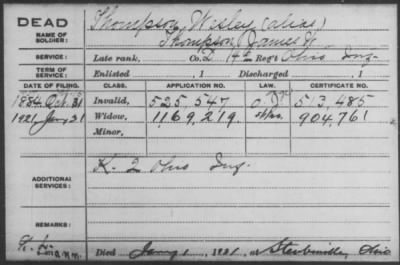 DEAD
NAME OF SOLDIER:
Thompson, Wesley (alias)
Thompson, James W.
SERVICE:
Late rank, Co. D, 14th Reg't Ohio Inf.
TERM OF SERVICE:
Enlisted , 1 Discharged , 1
DATE OF FILING. CLASS. APPLICATION NO. LAW. CERTIFICATE NO.
1884 Oct 31 Invalid, 525,547 513,485
1921, Jan 31 Widow, 1169,219 904,761
Minor,
ADDITIONAL SERVICES:
K-2 Ohio Inf.
REMARKS:
Died Jany 1 1921, at Steubenville, Ohio